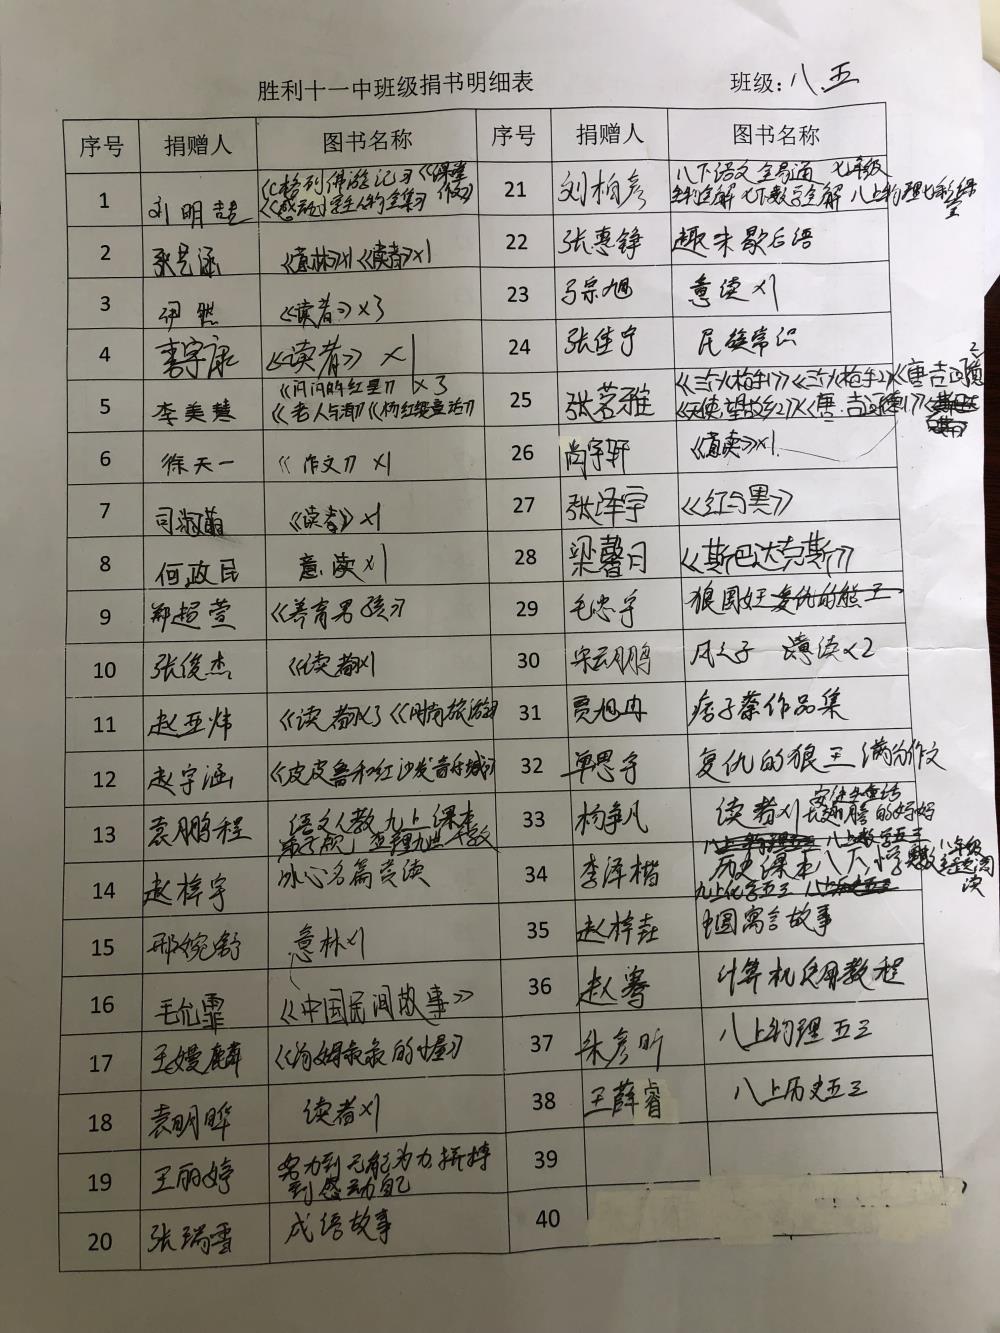 胜利十一中班级捐书明细表 班级：八五
序号 捐赠人 图书名称 序号 捐赠人 图书名称
1 刘明喆 《格列佛游记》
《感动学生人物全集》
21 刘柏彦 八下语文全易通 七年级
全解 七下数学全解 八上物理七彩课堂
2 《意林》×1《读者》×1
22 张惠铮 趣味歇后语
3 伊然 《读者》×3
23 马宗旭 意读×1
4 李宇康 《读者》×1
24 张佳宁 民族常识
5 李美慧 《闪闪的红星》×3
《老人与海》《杨红樱童话》
25 张茗雅 《三个火枪手1》《三个火枪手2》《唐·吉诃德2
《天使望故乡2》《唐·吉诃德1》
6 徐天一 《作文》×1
26 尚宇轩 《意读》×1
7 司淑萌 《读者》×1
27 张泽宇 《红与黑》
8 何政民 意读×1
28 梁馨月 《斯巴达克斯》
9 郑超萱 《养育男孩》
29 毛忠宇 狼国女王 复仇的熊王
10 张俊杰 《读者》×1
30 宋云鹏 风之子 意读×2
11 赵亚炜 《读者》×3《时尚旅游》
31 贾旭冉 痞子蔡作品集
12 赵宇涵 《皮皮鲁和红沙发音乐城》
32 单思宇 复仇的狼王 满分作文
13 袁鹏程 语文人教九上课本
33 杨争凡 读者×1 安徒生童话
14 赵梓宇 冰心名篇赏读
34 李泽楷 历史课本八
九上化学五三
15 邢婉舒 意林×1
35 赵梓垚 中国寓言故事
16 毛允霏 《中国民间故事》
36 赵骞 计算机应用教程
17 王嫚麟 《汤姆叔叔的小屋》
37 朱彦昕 八上物理五三
18 袁明晔 读者×1
38 王薛睿 八上历史五三
19 王丽婷 努力到无能为力 拼搏
到感动自己
39
20 张瑞雪 成语故事
40